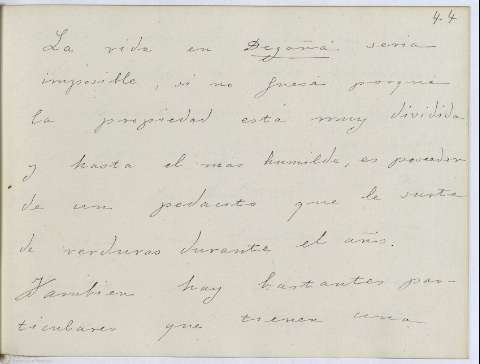 4-4
La vida en Degaña seria
imposible, si no fuesa porque
la propiedad está muy dividida
y hasta el mas humilde, es poseedor
de un pedacito que le surte
de verduras durante el año.
Tambien hay bastantes par-
ticulares que tienen una